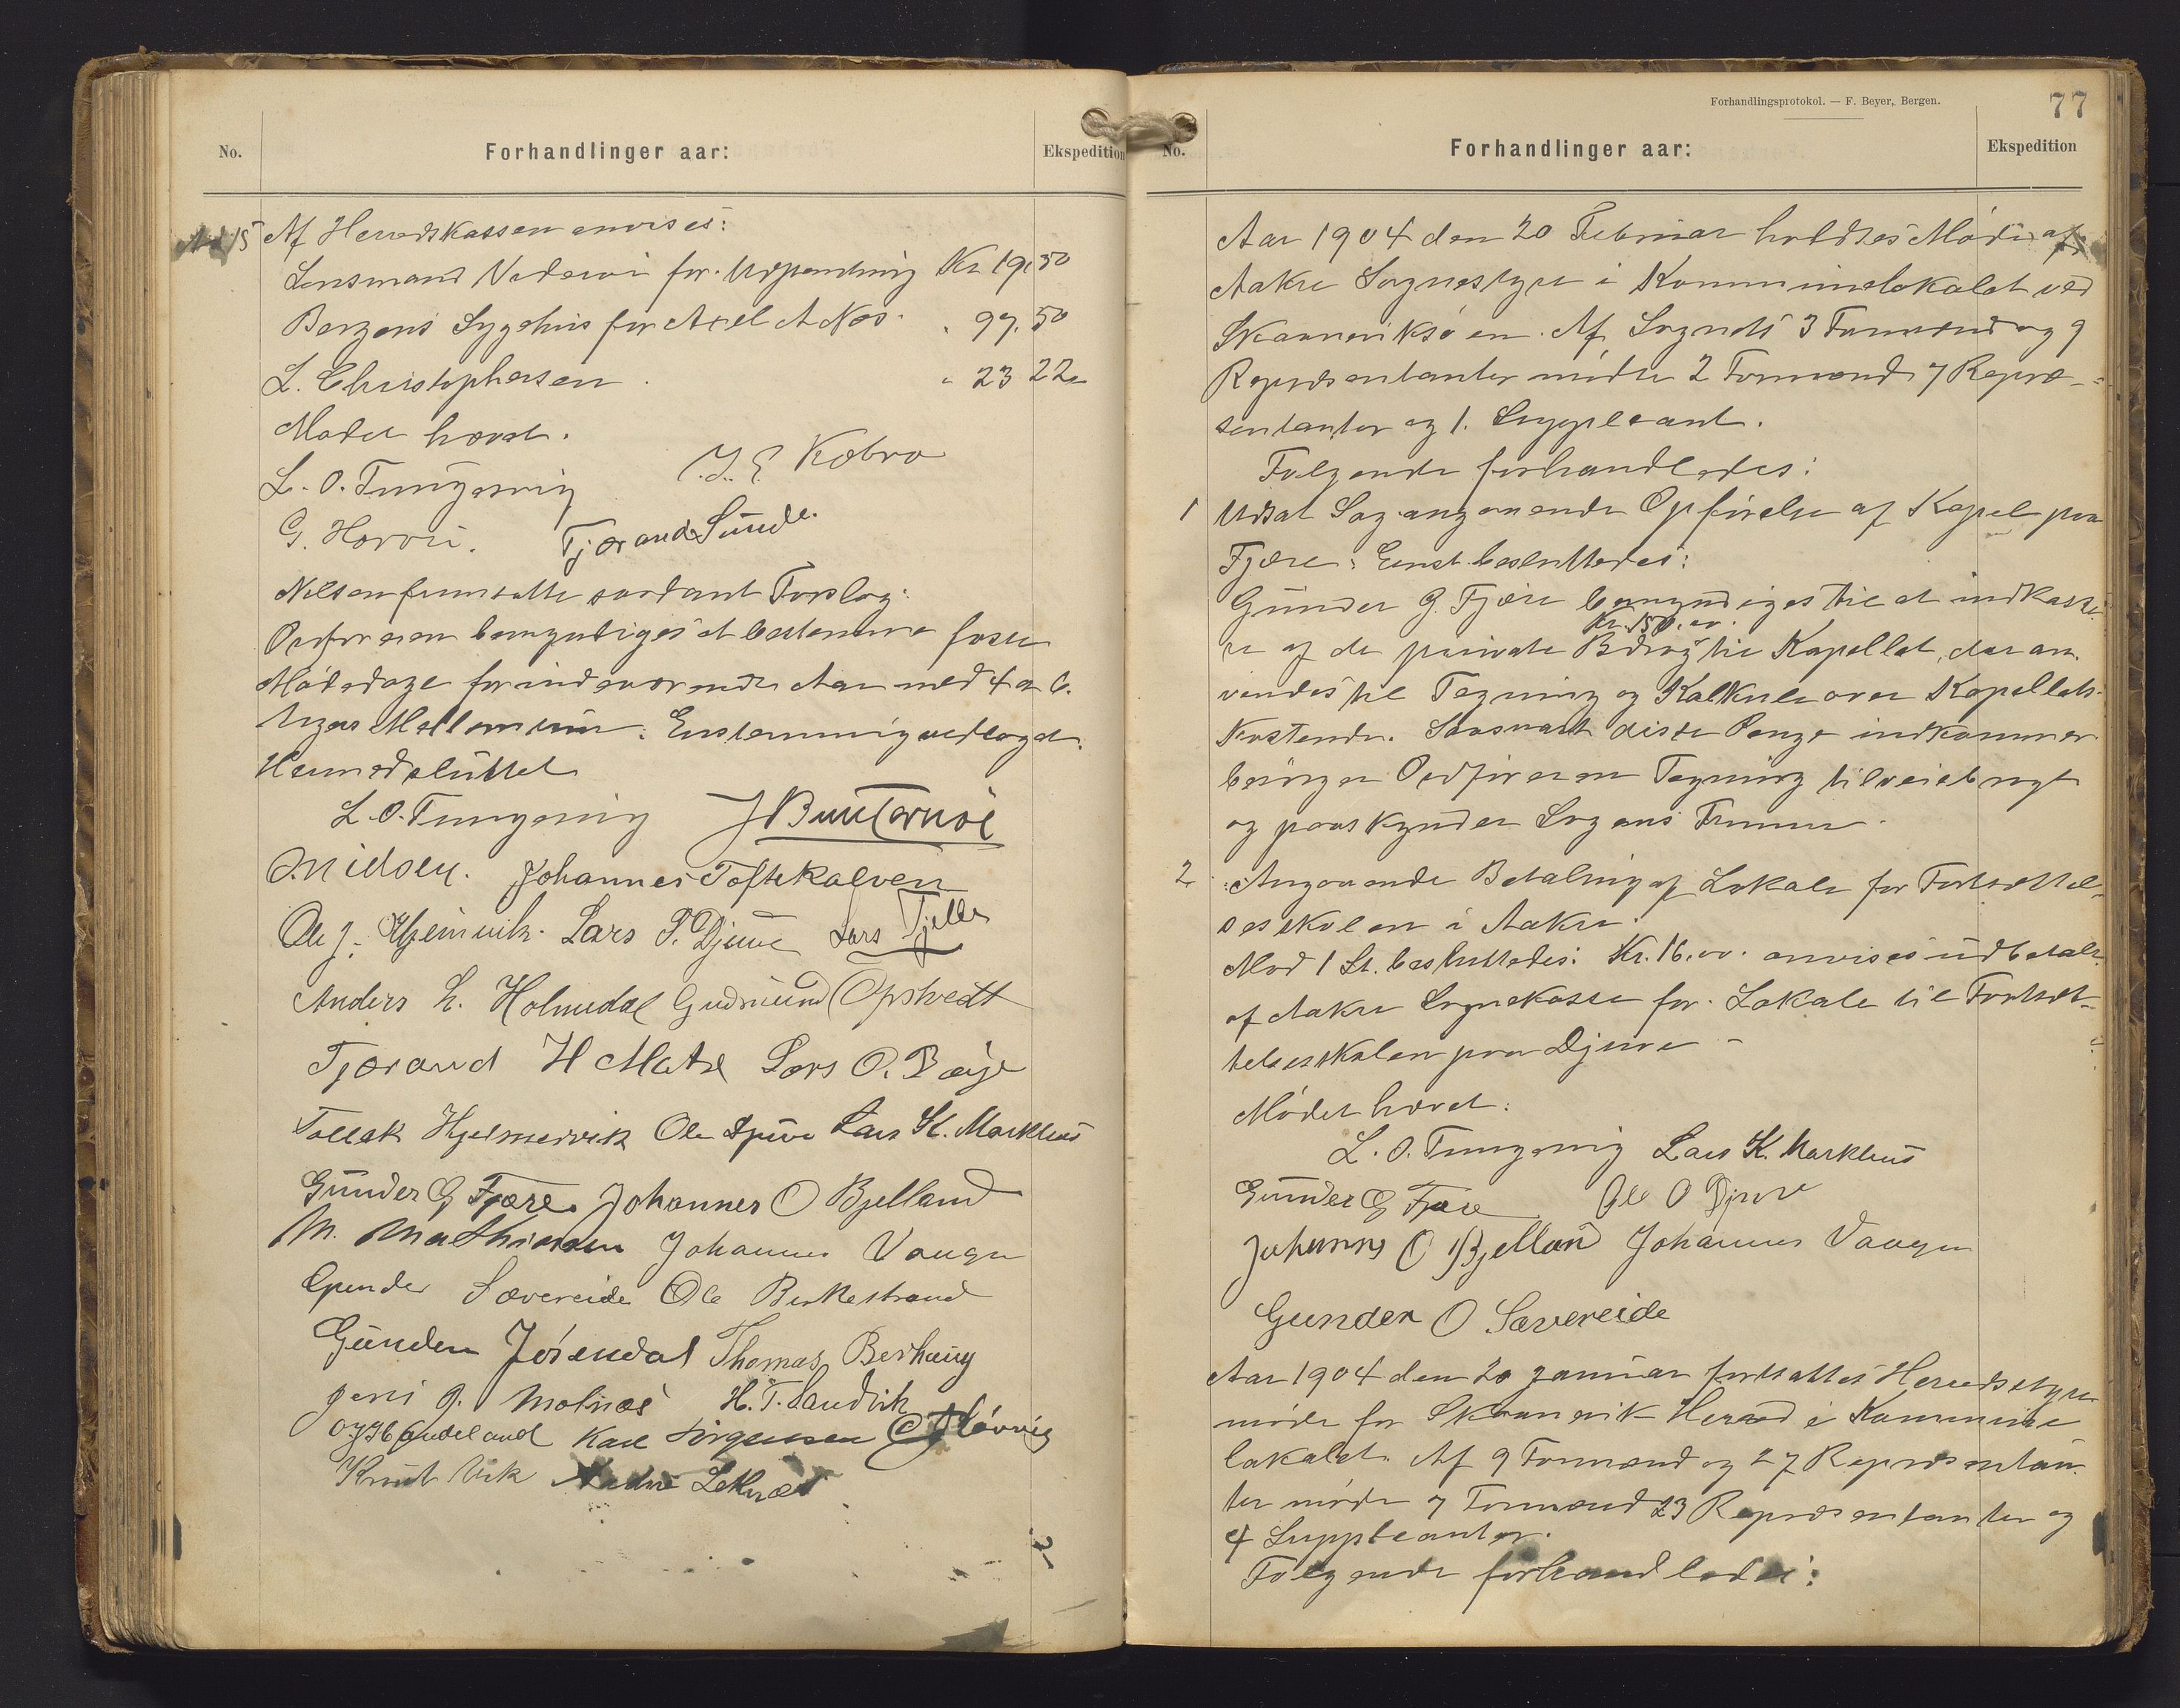 No.
Forhandlinger aar:
Ekspedition
Ad 15 Af Herredskassen anvises:
Lensmand Nedervi for Udpantning Kr 19,50
Bergens Sygehus for Axel A Næs " 97,50
L. Christophersen " 23 22
Mødet hævet.
L. O. Tungesvig J. E. Kobro
G. Horvei. Tjærand Sunde.
Nilsen fremsatte saadant Forslag:
Ordføreren bemyndiges at bestemme faste
Mødedage for indeværende Aar med 4 a 6
Ugers Mellemrum. Enstemmig vedtaget.
Hermed sluttet
L. O. Tungesvig J Bunternoe
O. Nielsen. Johannes Toftekalven
Ole J. Heimvik. Lars P. Djuve Lars Tjelle
Anders L. Holmedal Gudmund Opstvedt
Tjærand H Matre Lars O. Bøige
Tollak Hjelmervik Ole Djuve Lars K. Markhus
Gunder G Fjære. Johannes O Bjelland
M. Mathiassen Johannes Vaagen
Gunder Sævereide Ole Birkestrand
Gunder Jørendal Thomas Berhaug
Jens J. Molnæs H. T. Sandvik
Handeland Karl Jørgensen
Knut Vik Andre Leknæs
Forhandlingsprotokol. — F. Beyer, Bergen.
77
No.
Forhandlinger aar:
Ekspedition
Aar 1904 den 20 Februar holdtes Møde af
Aakre Sognestyre i Kommunelokalet ved
Skaaneviksøen. Af Sognets 3 Formænd og 9
Repræsentanter mødte 2 Formænd 7 Repræ-
sentanter og 1. Suppleant.
Følgende forhandledes:
1 Udsat Sag angaaende Opførelse af Kapel paa
Fjære: Enst. besluttedes:
Gunder G. Fjære bemyndiges til at indkasse
Kr. 150.00.
re af de private Bidrag til Kapellet, der an
vendes til Tegning og Kalkule over Kapellets
Kostende. Saasnart disse Penge indkommer
besørger Ordføreren Tegning tilveiebragt
og paaskynder Sagens Fremme.
2 Angaaende Betaling af Lokale for Fortsættel-
sesskolen i Aakre.
Mod 1 St. besluttedes: Kr. 16.00. anvises udbetalt
af Aakre Sognekasse for Lokale til Fortsæt-
telsesskolen paa Djuve -
Mødet hævet:
L. O. Tungesvig Lars K. Markhus
Gunder G Fjære Ole O Djuve
Johannes O Bjelland Johannes Vaagen
Gunder O Sævereide
Aar 1904 den 20 Januar fortsattes Herredsstyre
møde for Skaanevik Herred i Kommune
lokalet. Af 9 Formænd og 27 Repræsentan
ter mødte 7 Formænd 23 Repræsentanter og
4 Suppleanter.
Følgende forhandledes: